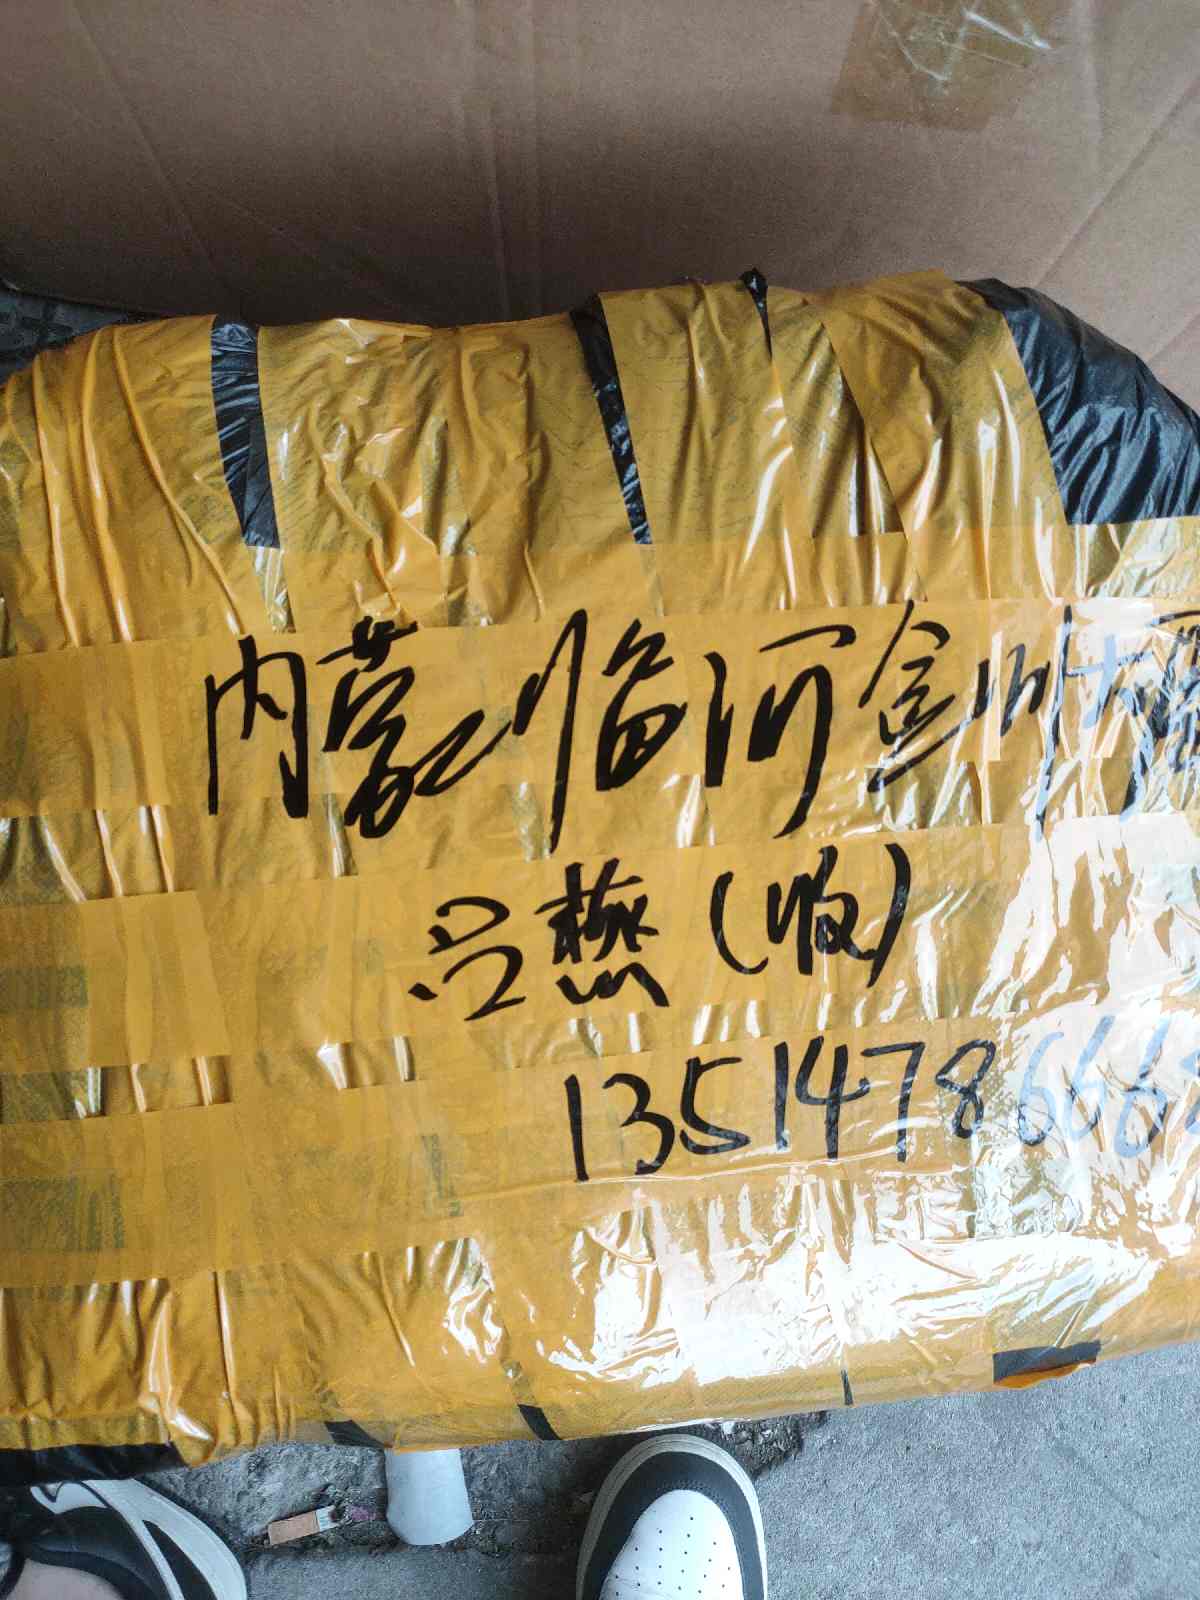 内蒙临河金川大厦
兰燕(收)
13514786668